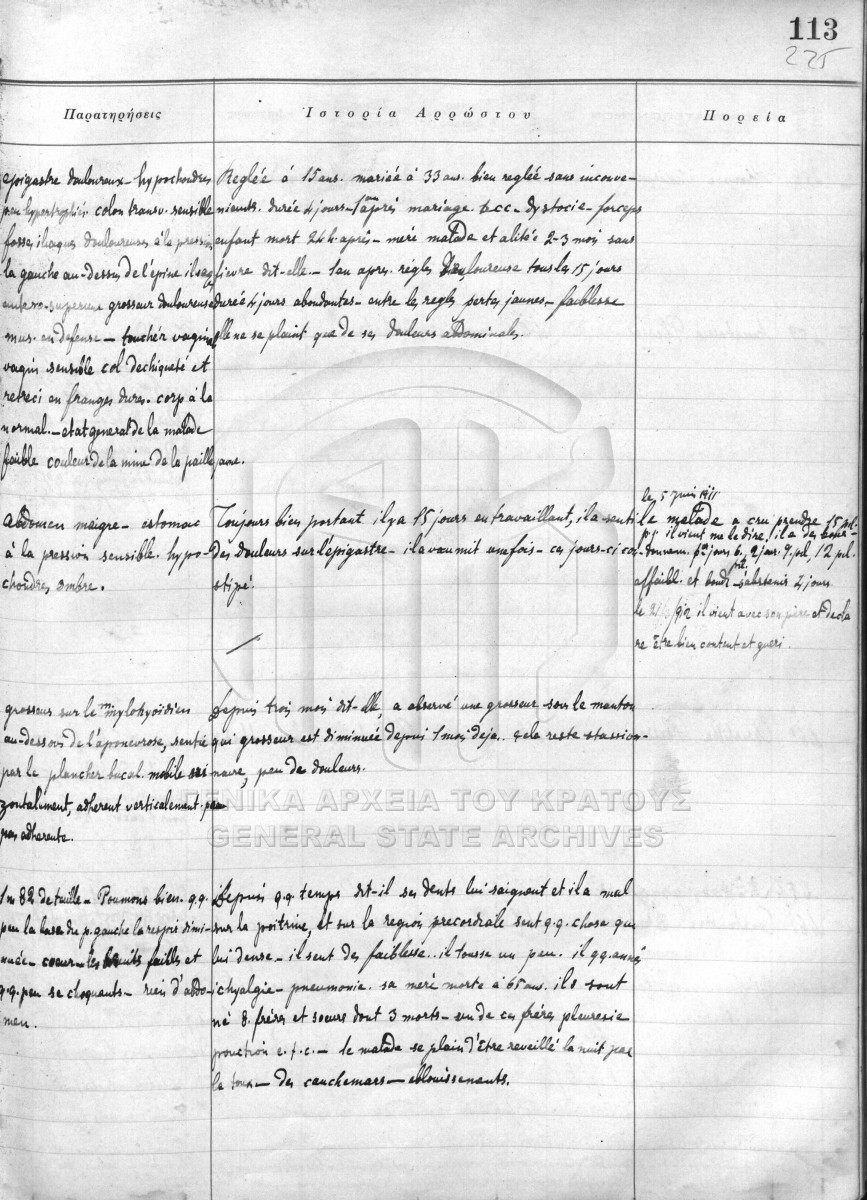 113
225
Παρατηρήσεις
Ἱστορία Ἀρρώστου
Πορεία
epigastre douloureux - hypochondres
peu hypertrophiés. colon transv. sensible
fosses iliaques douloureuses à la pression
la gauche au-dessus de l'épine iliaque
antero-superieure grosseur douloureuse
mus. en defense - toucher vaginal
vagin sensible col dechiqueté et
retreci en franges dures. corp à la
normal. - etat general de la malade
faible couleur de la mine de la paille jaune.
Reglée à 15 ans. mariée à 33 ans. bien reglée sans inconve-
nients. durée 4 jours - 1 an après mariage. acc - dystocie - forceps
enfant mort 24 h. après - meré malade et alitée 2-3 mois sans
fievre dit-elle. - 1 an apres. régles douloureuse tous les 15 jours
dureé 4 jours abondantes - entre les regles pertes jaunes - faiblesse
elle ne se plaint que de ses douleurs abdominales.
Abdomen maigre - estomac
à la pression sensible. hypo-
chondres ombre.
Toujours bien portant il y a 15 jours en travaillant, il a senti
des douleurs sur l'epigastre - il a vaumit une fois - ces jours-ci con-
stipé.
le, 5 juin 1911
le malade a cru prendre 15 pl.
p. j. il vient me le dire, il a des
jours 6, 2 jour. 9 pl, 12 pl.
affaibl. et s'abstenir 4 jours.
le 912 il vient avec son père et decla
re être bien content et gueri.
grosseur sur le m mylohyoïdien
au-dessous de l'aponevrose, sentie
par le plancher bucal. mobile ori
zontalement, adherent verticalement peau
pas adherente.
Depuis trois mois dit-elle, a observé une grosseur sous le menton
qui grosseur est diminuée depuis 1 mois deja.. cela reste stassion-
naire, peu de douleurs.
1 m 82 de taille - Poumons bien. q.q.
peu la base du p. gauche la respir dimi-
nuée - coeur - les bruits faibles et
q.q. peu se choquants - rien d'abdo-
men.
Depuis q.q. temps dit-il ses dents lui saignent et il a mal
sur la poitrine, et sur la region precordiale sent q.q. chose qui
lui dense - il sent des faiblesse.. il tousse un peu. il q.q. anneés
ichyalgie - pneumonie. sa meré morte à 65 ans. ils sont
né 8. fréres et soeurs dont 3 morts - un de ces fréres pleuresie
ponction e.t.c. - le malade se plain d'être reveillé la nuit par
la toux - des cauchemars - eblouissenants.
ΓΕΝΙΚΑ ΑΡΧΕΙΑ ΤΟΥ ΚΡΑΤΟΥΣ
GENERAL STATE ARCHIVES